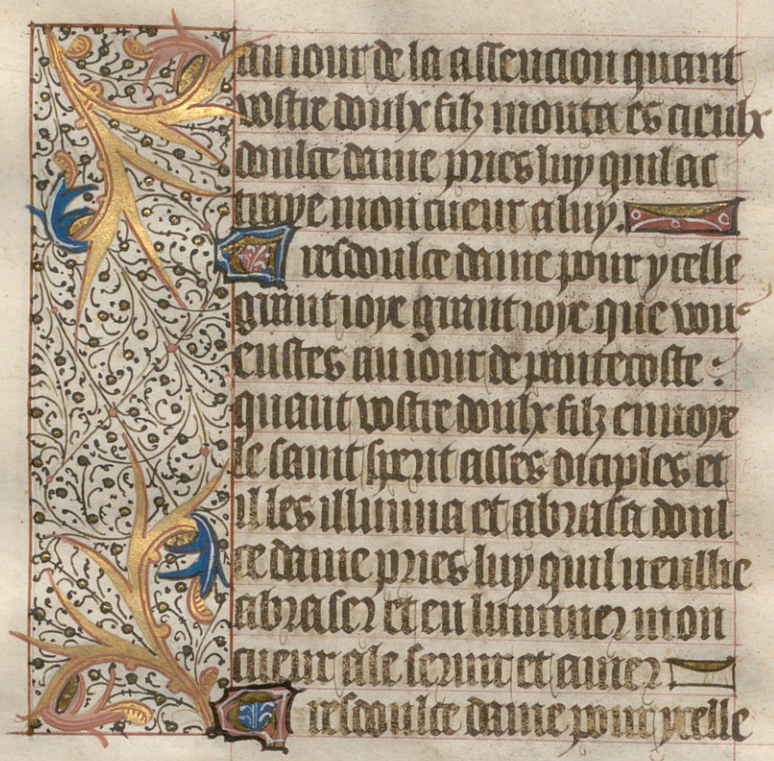 au iour de la assencion quant
vostre doulx filz monta es cieulx
doulce dame pries luy quil at
traye mon cueur a luy.
Tresdoulce dame pour ycelle
grant ioye grant ioye que vou
eustes au iour de pantecoste :
quant vostre doulx filz enuoye
le saint sperit asses diciples et
il les illumina et abrasa doul
ce dame pries luy quil ueullie
abraser et en luminer mon
cueur a le seruir et amer
Tresdoulce dame pour ycelle